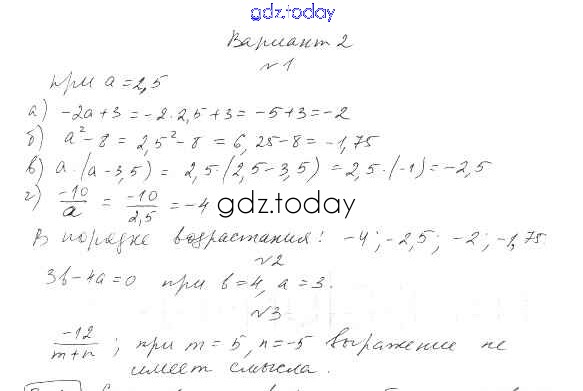 gdz.today
Вариант 2
№1
при a = 2,5
а) -2a+3 = -2·2,5+3 = -5+3 = -2
б) a²-8 = 2,5²-8 = 6,25-8 = -1,75
в) a·(a-3,5) = 2,5·(2,5-3,5) = 2,5·(-1) = -2,5
г) -10/a = -10/2,5 = -4 gdz.today
В порядке возрастания: -4; -2,5; -2; -1,75
№2
3b-4a=0 при b=4, a=3.
№3
-12/(m+n); при m=5, n=-5 выражение не
имеет смысла.